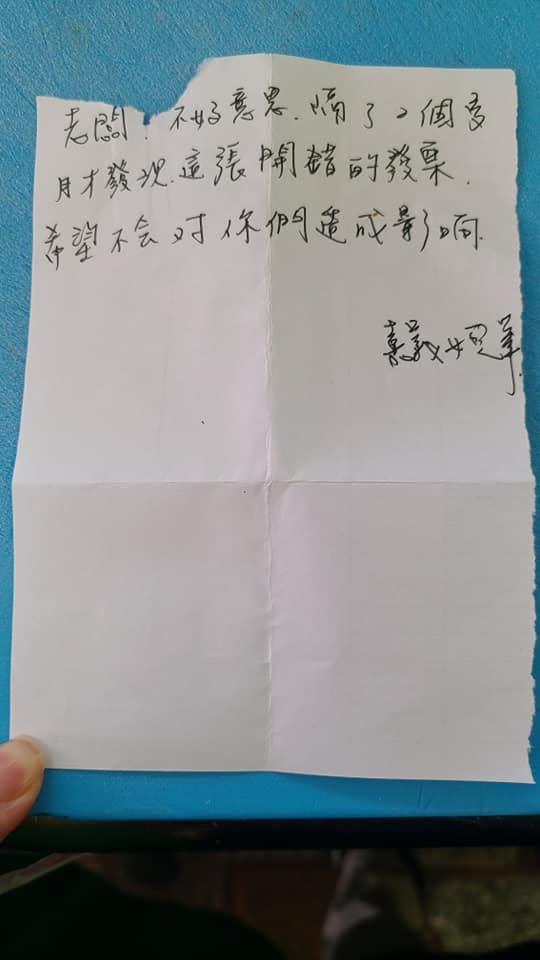 老闆. 不好意思. 隔了2個多
月才發現.這張開錯的發票.
希望不会对你們造成影响.
嘉義